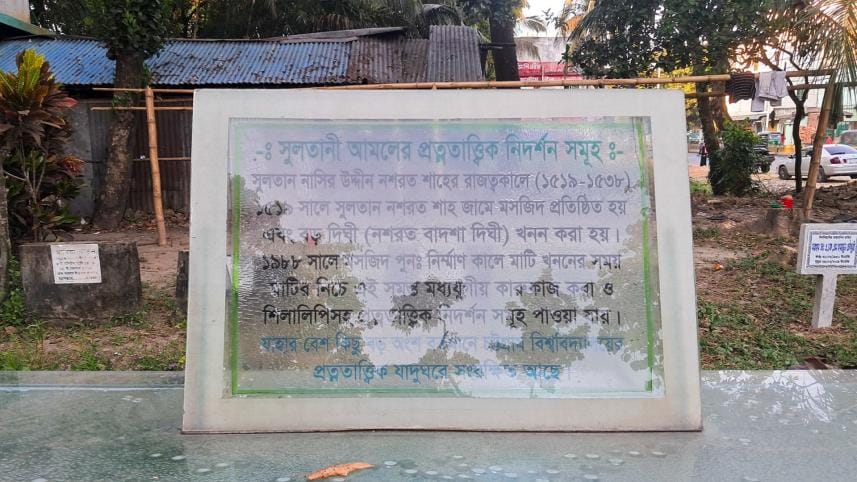 -ঃ সুলতানী আমলের প্রত্নতাত্ত্বিক নিদর্শন সমূহ ঃ-
সুলতান নাসির উদ্দীন নশরত শাহের রাজত্বকালে (১৫১৯-১৫৩৮)
১৫১৯ সালে সুলতান নশরত শাহ জামে মসজিদ প্রতিষ্ঠিত হয়
এবং বড় দিঘী (নশরত বাদশা দিঘী) খনন করা হয়।
১৯৮৮ সালে মসজিদ পুনঃ নির্মাণ কালে মাটি খননের সময়
মাটির নিচে এই সমস্ত মধ্যযুগীয় কারুকাজ করা ও
শিলালিপিসহ প্রত্নতাত্ত্বিক নিদর্শন সমূহ পাওয়া যায়।
যাহার বেশ কিছু বড় অংশ বর্তমানে চট্টগ্রাম বিশ্ববিদ্যালয়ের
প্রত্নতাত্ত্বিক যাদুঘরে সংরক্ষিত আছে।